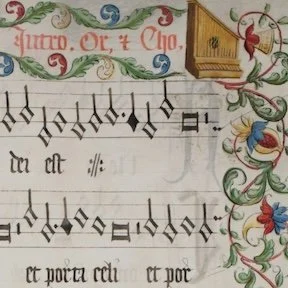 Intro. Or, & Cho.
dei est
et porta celi et por